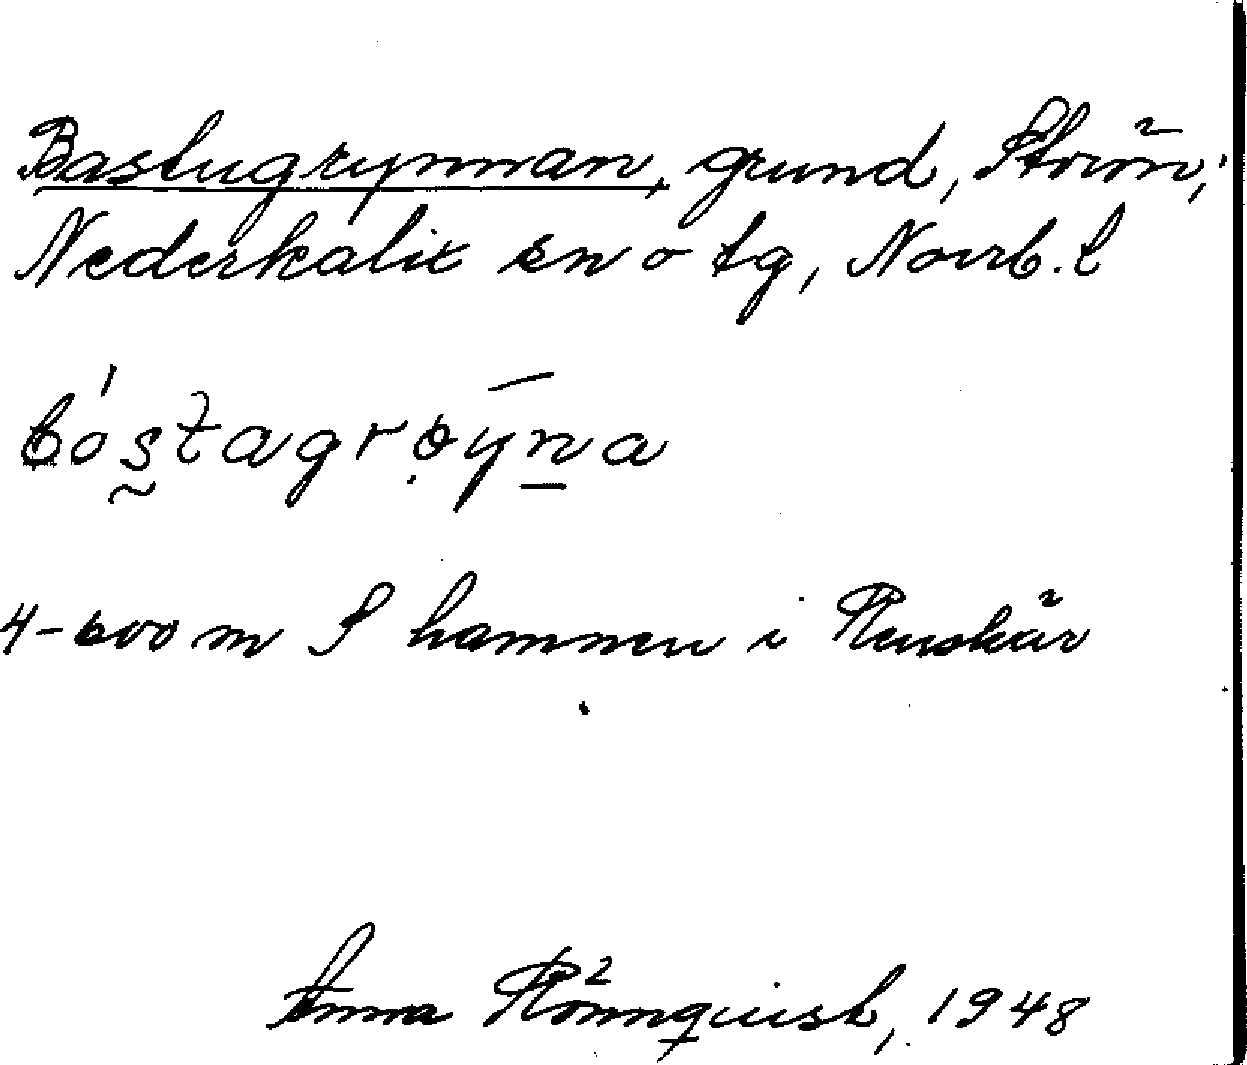 Bastugrynnan, grund, Ström,
Nederkalix sn o tg, Norrb. l
bóstagrøyna
4-600 m S hamnen i Renskär
Anna Rönnquist, 1948